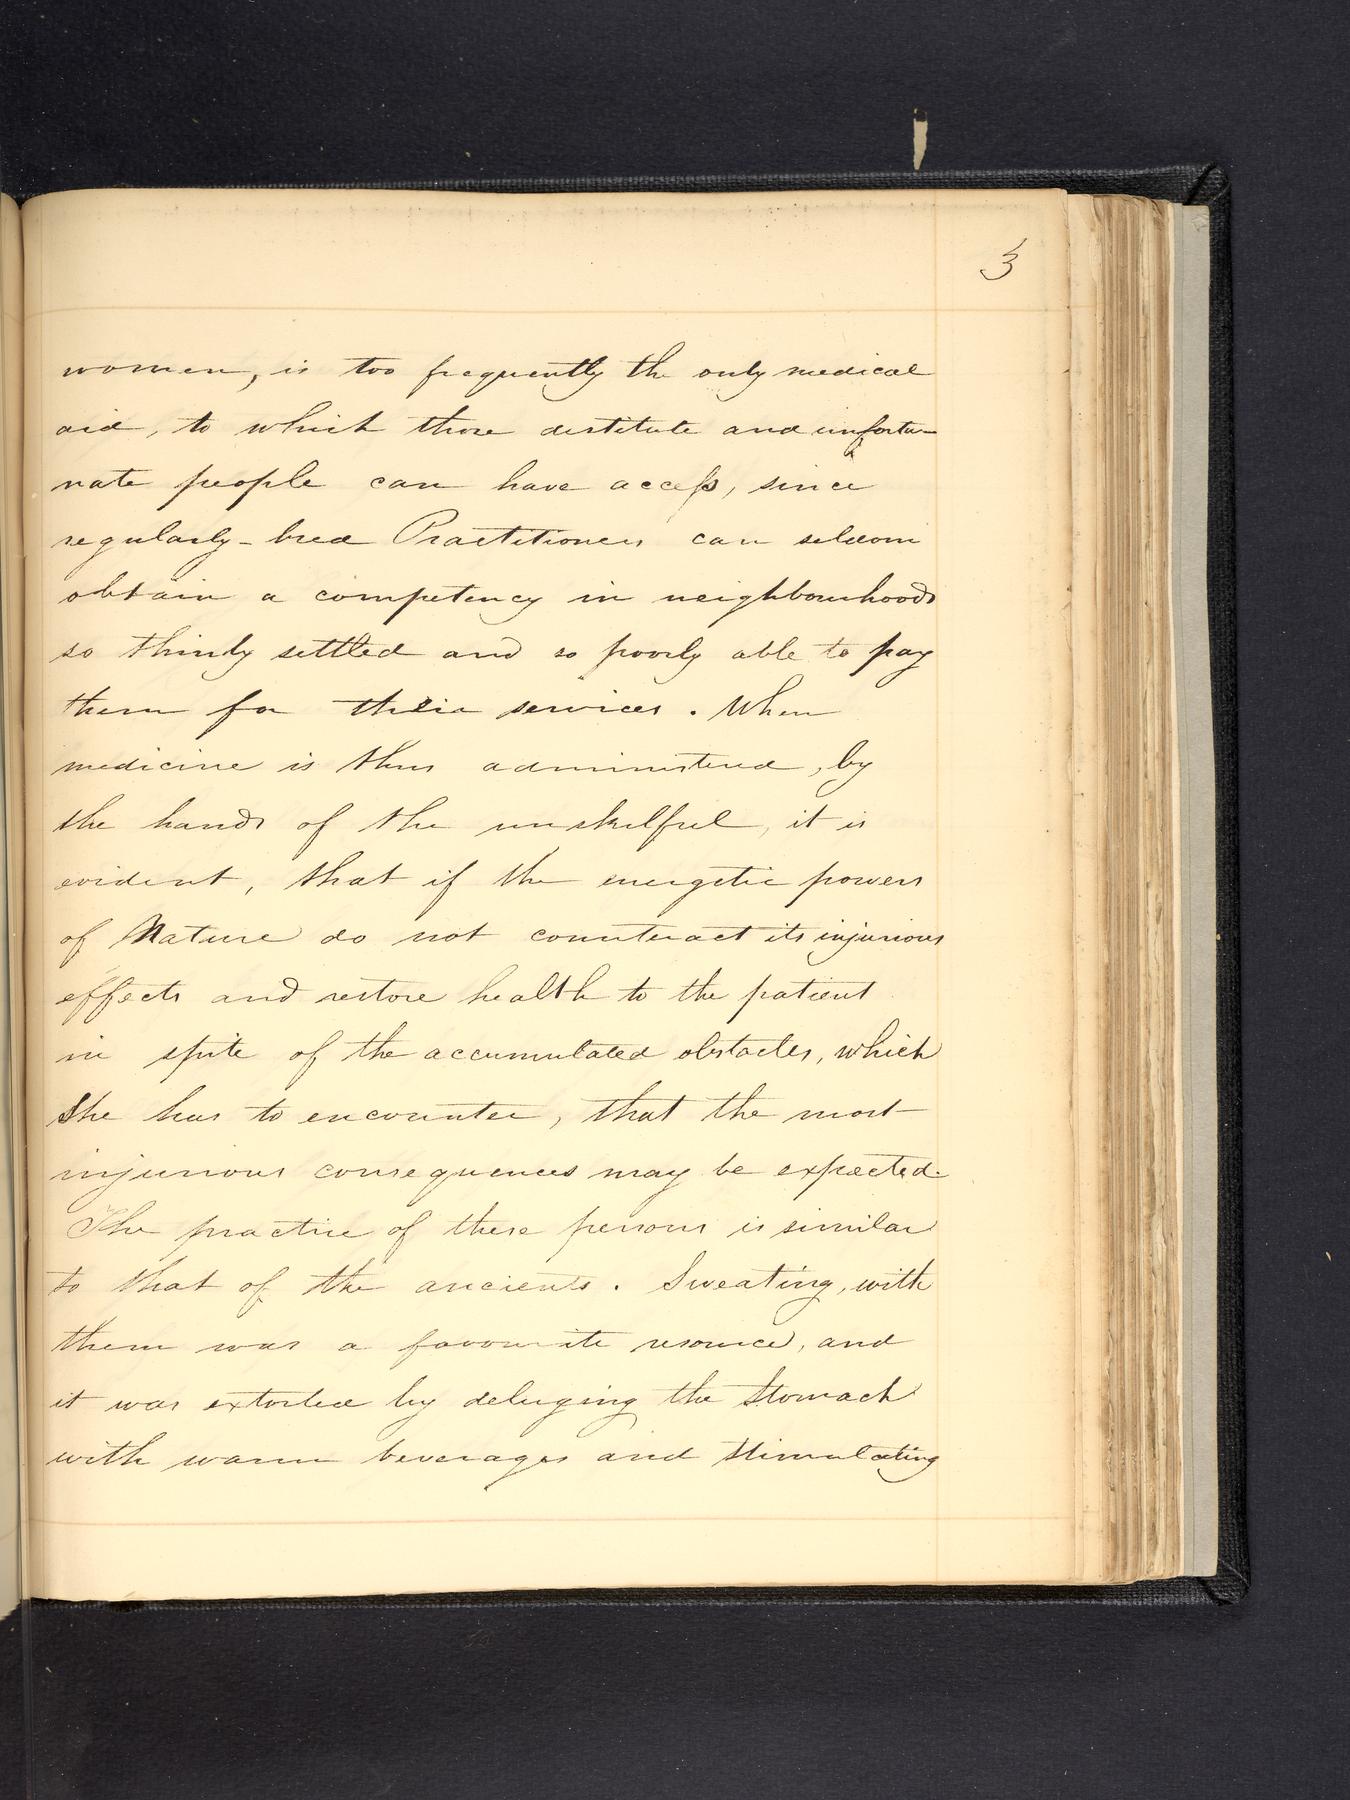 3
women, is too frequently the only medical
aid, to which those destitute and unfortu-
nate people can have access, since
regularly-bred Practitioners can seldom
obtain a competency in neighbourhoods
so thinly settled and so poorly able to pay
them for their services. When
medicine is thus administered, by
the hands of the unskilful, it is
evident, that if the energetic powers
of Nature do not counteract its injurious
effects and restore health to the patient
in spite of the accumulated obstacles, which
She has to encounter, that the most
injurious consequences may be expected.
The practice of these persons is similar
to that of the ancients. Sweating, with
them was a favourite resource, and
it was extorted by deluging the Stomach
with warm beverages and Stimulating